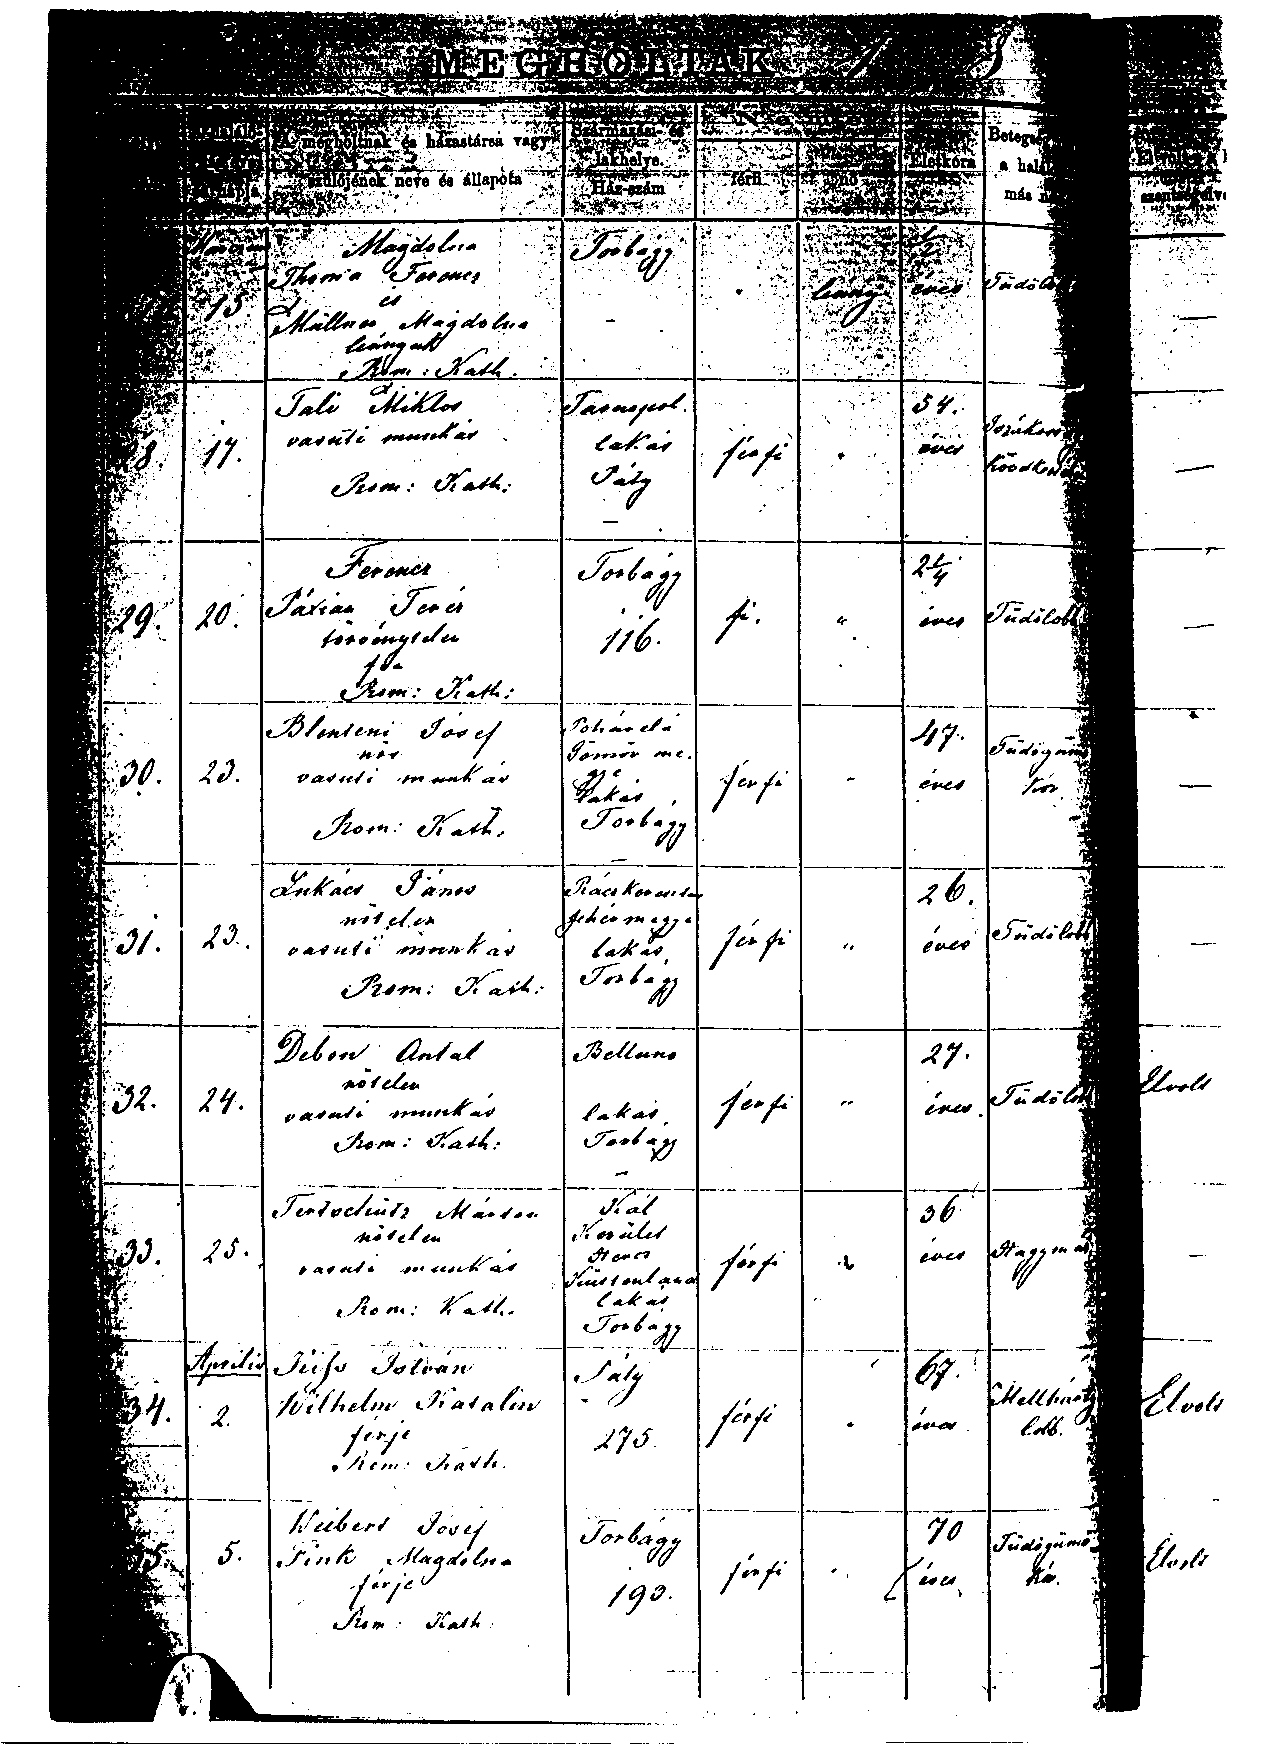 MEGHOLTAK
A megholtnak és házastársa vagy
szülőjének neve és állapota
Származási- és
lakhelye.
Ház-szám
férfi
nő
Életkora
a halál
más
15
Magdolna
Thoma Ferencz
és
Müllner Magdolna
leányuk
Rom: Kath.
Torbágy
-
leány
1/2
éves
Tüdőlob
—
28
17.
Tali Miklos
vasúti munkás
Rom: Kath:
Tarnopol.
lakás
Páty
—
férfi
"
54.
éves
—
29.
20.
Ferencz
Teréz
törvénytelen
fia
Rom: Kath:
Torbágy
116.
fi.
"
2 1/4
éves
Tüdőlob
—
30.
23.
József
nős
vasuti munkás
Rom: Kath.
Pohárelá
Gömör me.
gye
lakás,
Torbágy
—
férfi
"
47.
éves
Tüdőgüm
kór
—
31.
23.
Lukács János
nőtelen
vasuti munkás
Rom: Kath:
fehérmegye
lakás,
Torbágy
férfi
"
26.
éves
Tüdőlob
—
32.
24.
Debon Antal
nőtelen
vasuti munkás
Rom: Kath:
Belluno
lakás,
Torbágy
—
férfi
"
27.
éves.
Tüdőlob
Elvolt
33.
25.
Márton
nőtelen
vasuti munkás
Rom: Kath.
Kál
Kerület
Küstenland
lakás
Torbágy
férfi
"
36
éves
Hagymáz
—
Április
34.
2.
István
Wilhelm Katalin
férje
Rom: Kath.
Páty
-
275.
férfi
"
67.
éves
Mellhárty
lob.
Elvolt
5.
Weibert József
Fink Magdolna
férje
Rom: Kath.
Torbágy
193.
férfi
"
70
éves
Tüdőgümő
Kór.
Elvolt